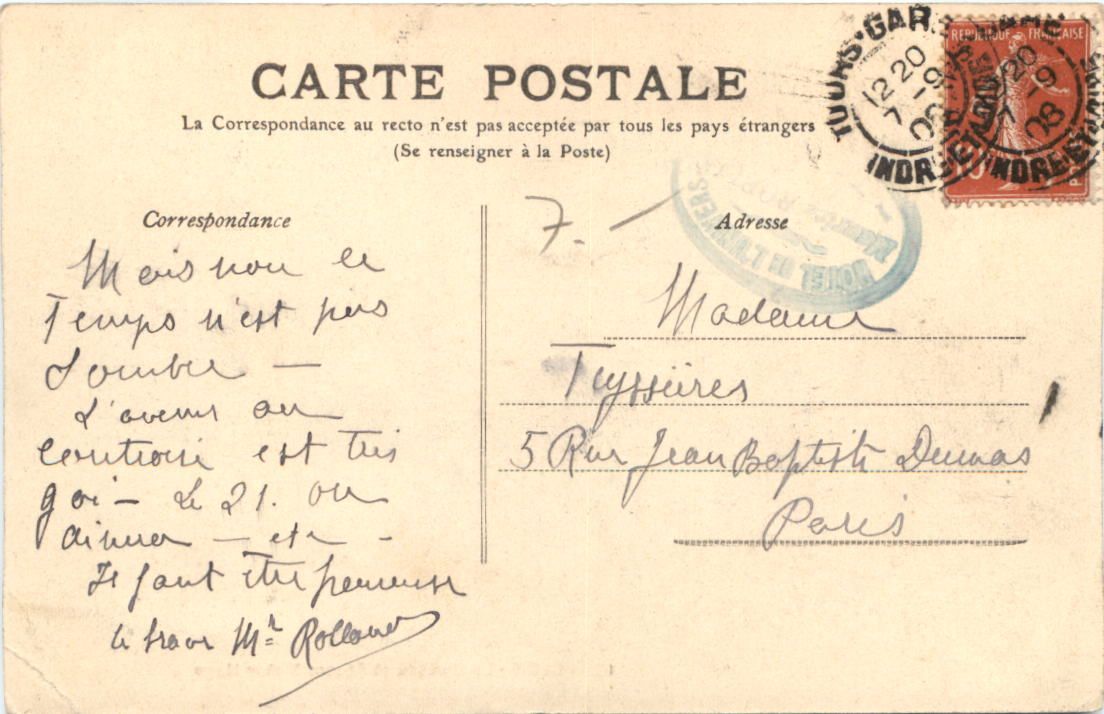 CARTE POSTALE
La Correspondance au recto n'est pas acceptée par tous les pays étrangers
(Se renseigner à la Poste)
TOURS-GARE
12 20
7 -9
08
INDRE-ET-LOIRE
REPUBLIQUE FRANÇAISE
12 20
7 -9
08
INDRE-ET-LOIRE
HOTEL DE L'UNIVERS
Correspondance
Mais non le
Temps n'est pas
Sombre —
L'avenir au
contraire est très
gai — Le 21. on
dinera — etc —
Il faut être
le brave Mr
7. —
Adresse
Madame
Teyssières
5 Rue Jean Baptiste Dumas
Paris